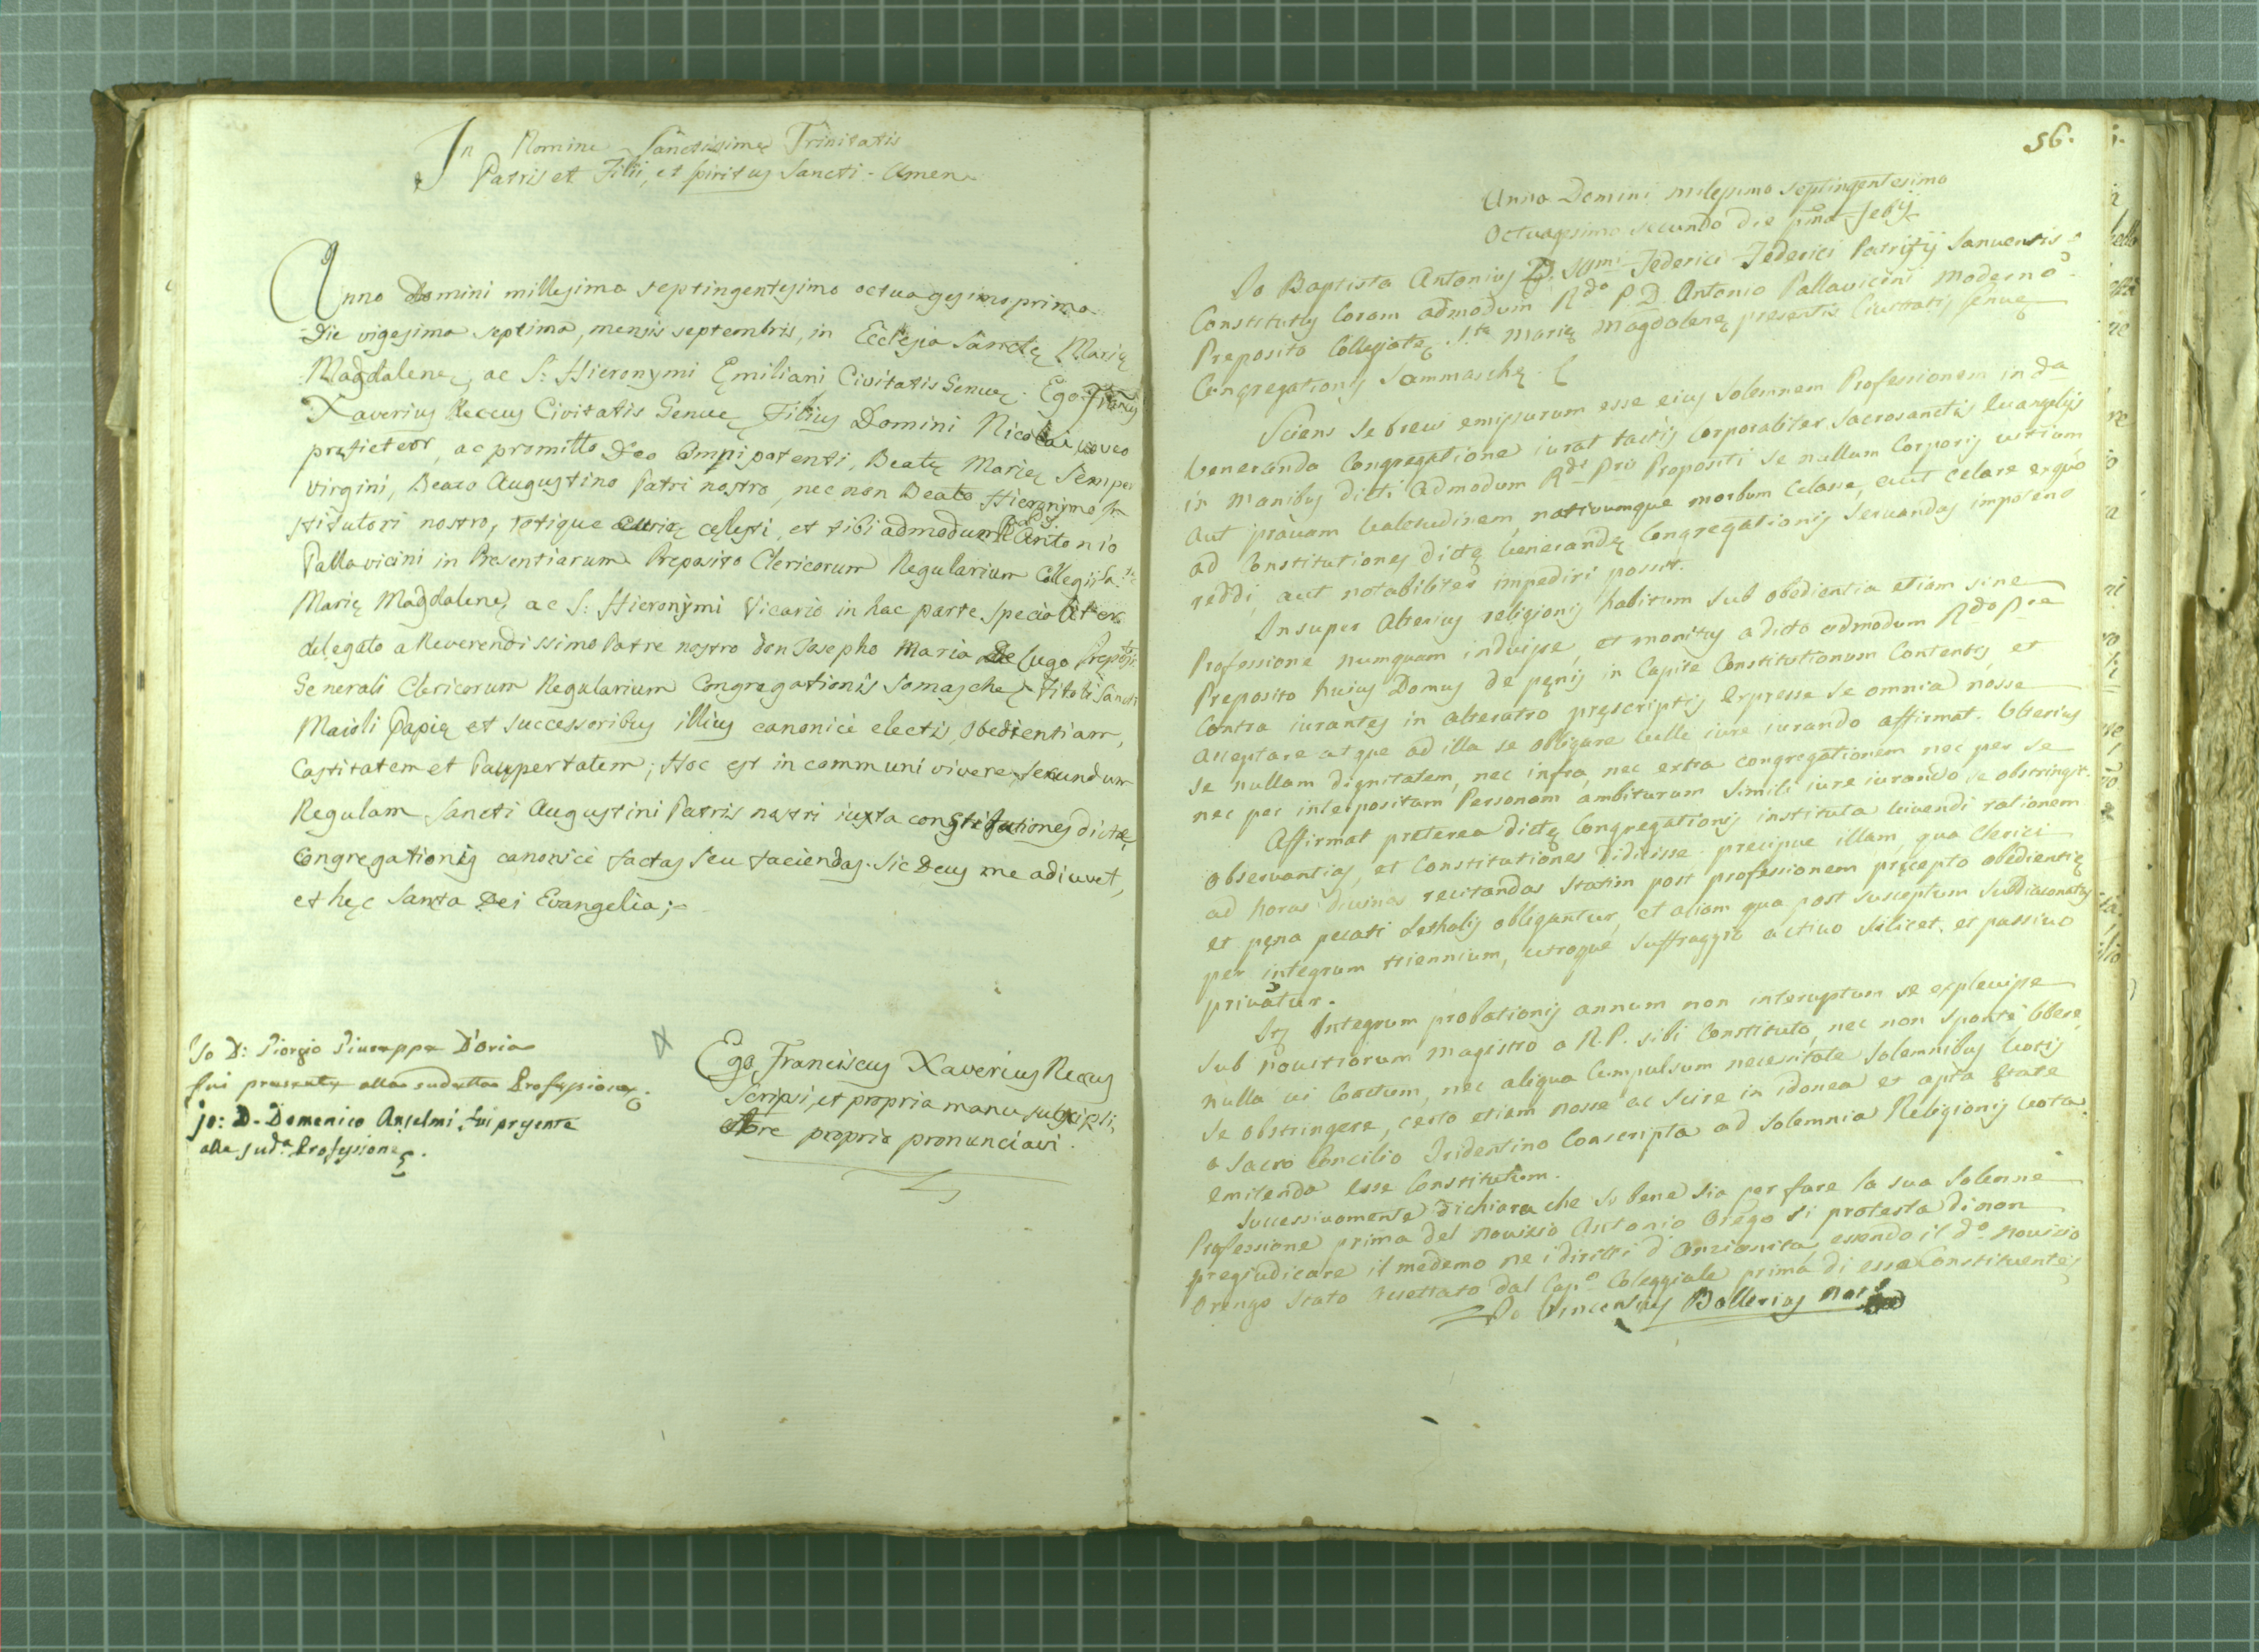 In Nomine Sanctissimę Trinitatis
Patris et Filii, et spiritus Sancti - Amen
Anno Domini millesimo septingentesimo octuagesimo primo
Die vigesima septima, mensis septembris, in Ecclesia Sanctę Marię
Magdalenę, ac S: Hieronymi Ęmiliani Civitatis Genuę. Ego Fran.cus
Xaverius Reccus Civitatis Genuę Filius Domini Nicolai, voveo
profiteor, ac promitto Deo Omnipotenti, Beatę Marię Semper
Virgini, Beato Augustino Patri nostro, nec non Beato Hieronymo In
stitutori nostro, totique curię cęlesti, et tibi admodum R. P. D. Antonio
Pallavicini in Presentiarum Preposito Clericorum Regularium Collegii S.tę
Marię Magdalenę, ac S: Hieronymi Vicario in hac parte specialiter
delegato a Reverendissimo Patre nostro don Josepho Maria De Lugo Preposito
Generali Clericorum Regularium Congregationis Somaschę Tituli Sancti
Maioli Papię et successoribus illius canonicè electis, obedientiam,
Castitatem et Paupertatem; Hoc est in communi vivere, secundum
Regulam Sancti Augustini Patris nostri iuxta constitutiones dictę
Congregationis canonicè factas seu faciendas. Sic Deus me adiuvet,
et hęc Santa Dei Evangelia;
Io D: Giorgio Giuseppe D'oria
fui presente alla sudetta Professione.
jo: D. Domenico Anselmi fui presente
alla sud.a Professione.
Ego Franciscus Xaverius Reccus
Scripsi, et propria manu subscripsi,
et ore proprio pronunciavi.
56.
Anno Domini milesimo septingentesimo
Octuagesimo secundo die pma Febij
Jo Baptista Antonius D. Federici Federici Patritij Januensis
Constitutus Coram admodum Rdo P. D. Antonio Pallavicini moderno
Preposito Collegiatę S.tę Marię Magdalenę presentis Civitatis Genuę
Congregationis Sommaschę.
Sciens se brevi emissurum esse eius Solemnem Professionem in da
Veneranda Congregatione iurat tactis corporaliter Sacrosanctis Evangelijs
in manibus dicti admodum Rdi Pris Propositi se nullum Corporis vitium
aut pravam valetudinem, nativumque morbum Celasse, aut celare ex quo
ad Constitutiones dictę Venerandę Congregationis servandas impotens
reddi, aut notabiliter impediri possit.
Insuper Alterius religionis habitum sub obedientia etiam sine
Professione numquam induisse, et monitus a dicto admodum Rdo Pre
Preposito huius Domus de pęnis in Capite Constitutionum Contentis, et
Contra iurantes in alterutro pręscriptis Expresse se omnia nosse
acceptare atque ad illa se obligare velle iure iurando affirmat. Ulterius
se nullam dignitatem, nec infra, nec extra congregationem nec per se
nec per interpositam Personam ambiturum simili iure iurando se obstringit.
Affirmat preterea dictę Congregationis instituta vivendi rationem
observantias, et Constitutiones didicisse precipue illam, qua Clerici
ad horas divinas recitandas statim post professionem pręcepto obedientię
et pęna pecati Lethalis obligantur, et aliam qua post susceptum Subdiaconatus
per integrum triennium, utroque suffraggio activo scilicet, et passivo
privatur.
Integrum probationis annum non interuptum se explevisse
sub novitiorum magistro a R. P. sibi Constituto, nec non sponte, libere,
nulla vi Coactum, nec aliqua Compulsum necessitate Solemnibus Votis
se obstringere, certo etiam nosse ac scire in idonea et apta ętate
a Sacro Concilio Tridentino Conscripta ad solemnia Religionis vota
emitenda esse Constitutum.
Successivamente dichiara che se bene sia per fare la sua solenne
Professione prima del novizio Antonio Orego si protesta di non
pregiudicare il medemo ne i diritti d'anzianita, essendo il do novizio
Orengo stato accettato dal Cap.o Coleggiale prima di esso Constituente
Jo Vincentius Ballerius not.s